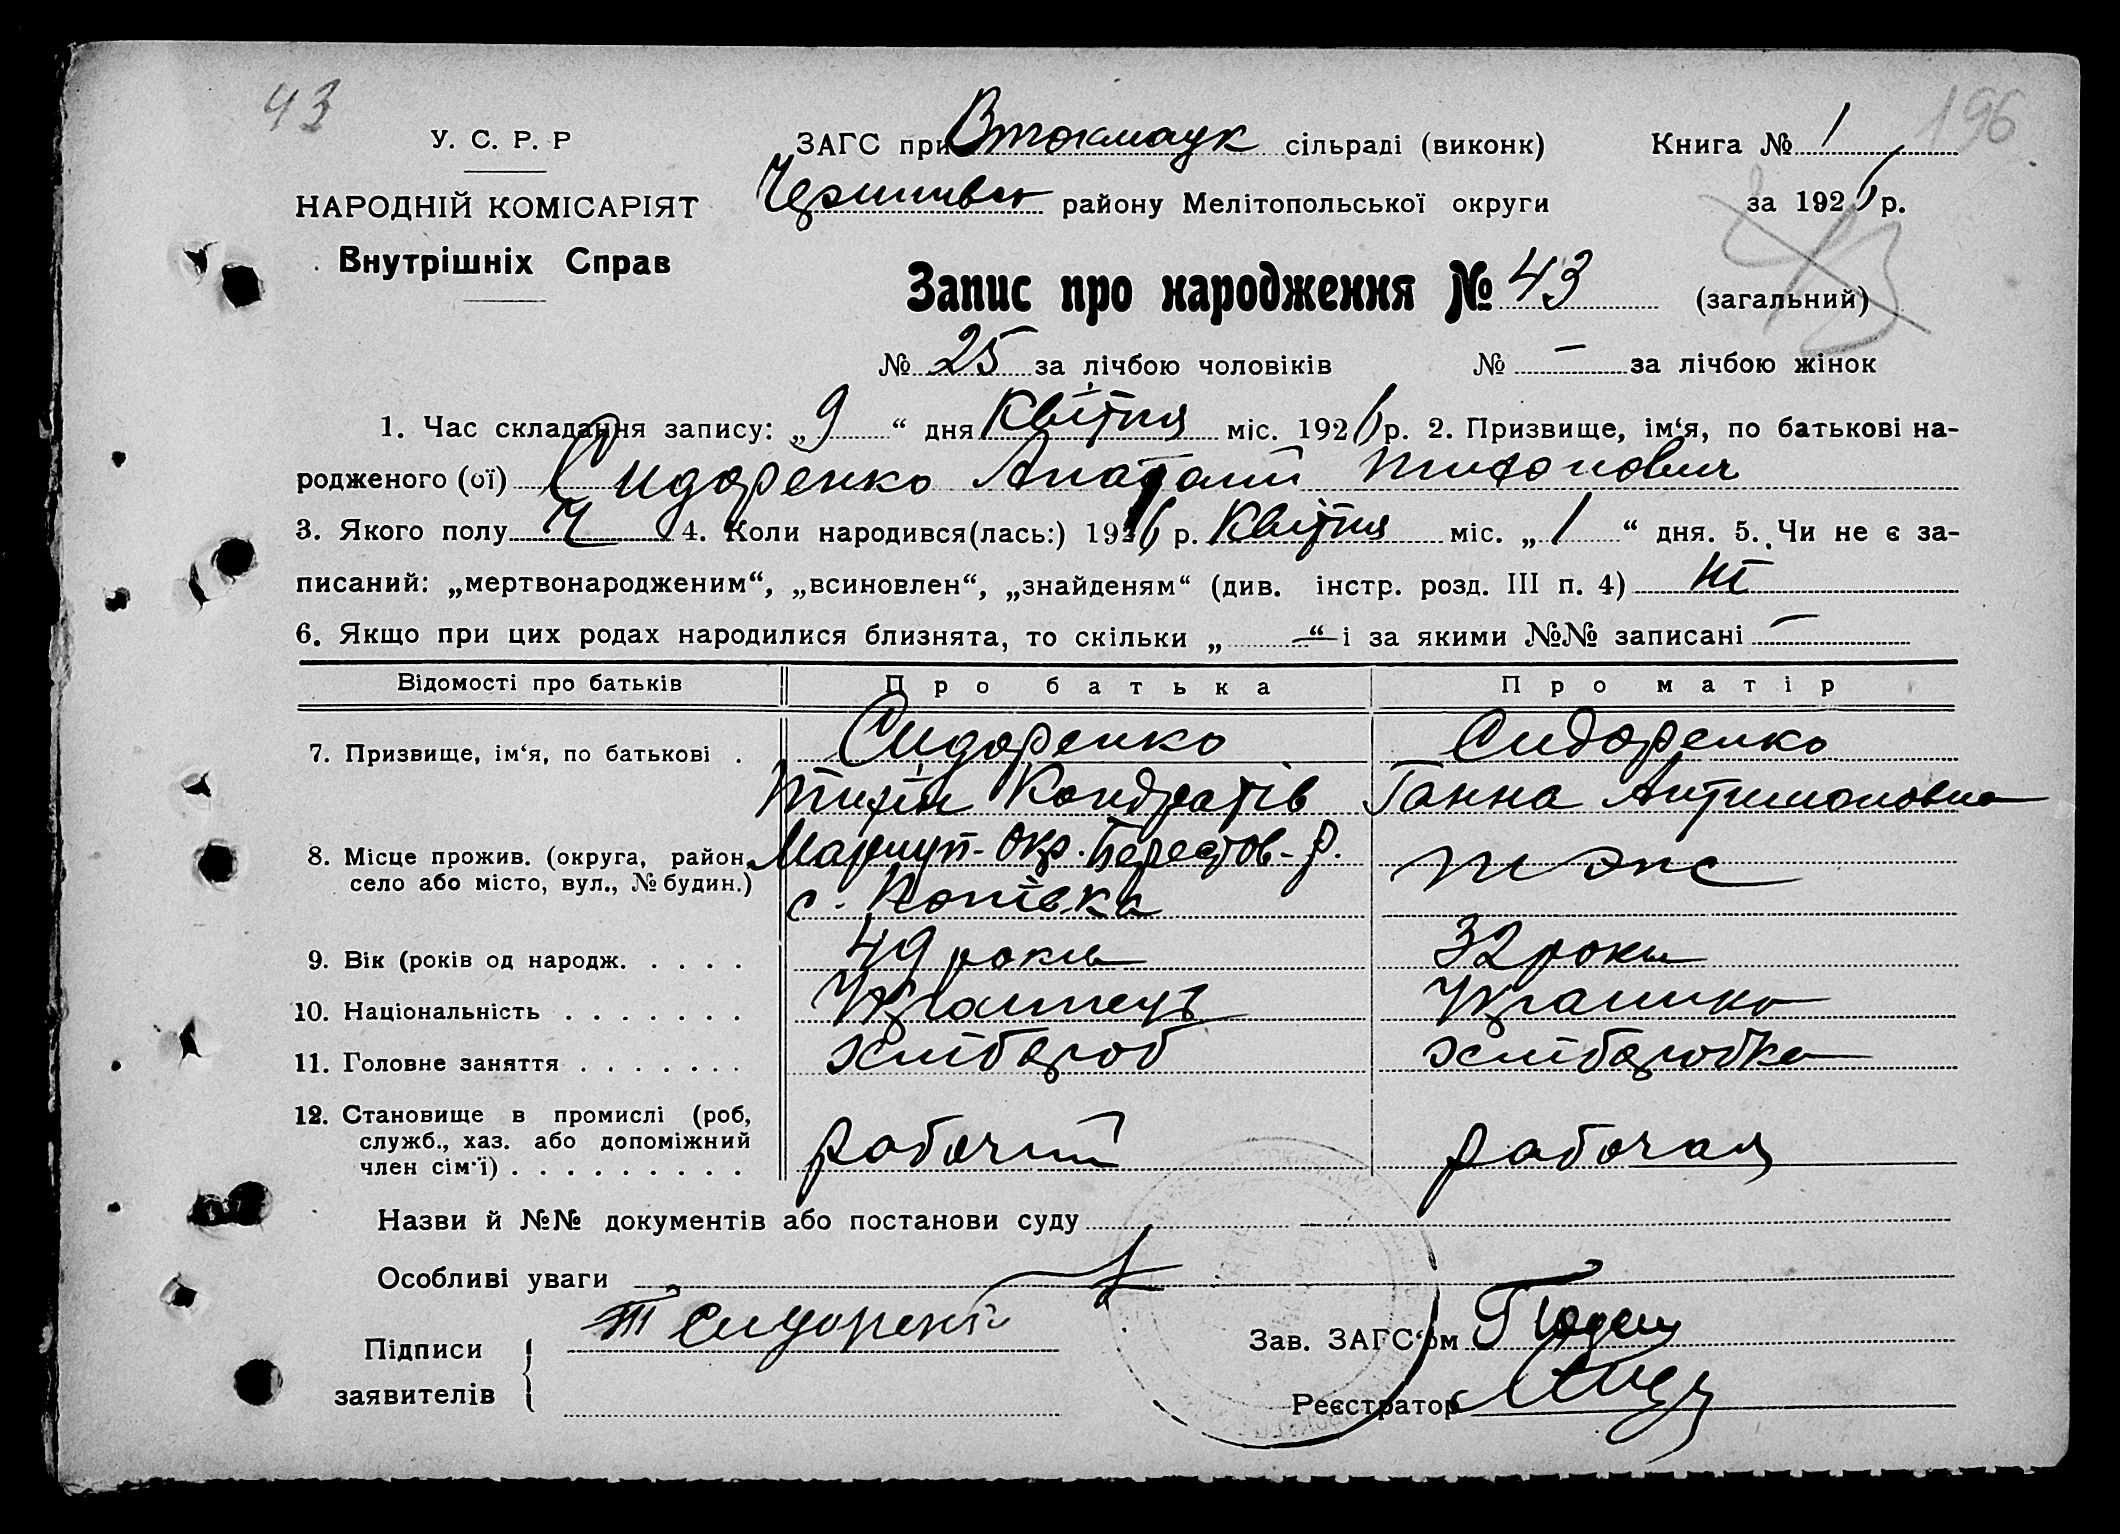 43
196
У. С. Р. Р
ЗАГС при Втокмаук сільраді (виконк)
Книга № 1
НАРОДНІЙ КОМІСАРІЯТ
району Мелітопольської округи
за 1926 р.
Внутрішніх Справ
Запис про народження № 43 (загальний)
43
№ 25 за лічбою чоловіків № — за лічбою жінок
1. Час складання запису: „9“ дня Квітня міс. 1926 р. 2. Призвище, ім‘я, по батькові на-
родженого (ої) Сидоренко Анатолій Тихонович
3. Якого полу Ч 4. Коли народився(лась:) 1926 р. Квітня міс. „1“ дня. 5. Чи не є за-
писаний: „мертвонародженим“, „всиновлен“, „знайденям“ (див. інстр. розд. III п. 4) ні
6. Якщо при цих родах народилися близнята, то скільки „—“ і за якими №№ записані —
Відомості про батьків Про батька Про матір
7. Призвище, ім‘я, по батькові . Сидоренко Сидоренко
Тихін Кондратів Ганна Антимоновна
8. Місце прожив. (округа, район, Мариуп- Окр. Берестов- р.
село або місто, вул., № будин.) с. Попівка
тэж
9. Вік (років од народж. . . . . 49 років 32 роки
10. Національність . . . . . . . Украинець Украинка
11. Головне заняття . . . . . . . хлібороб хліборобка
12. Становище в промислі (роб, служб., хаз. або допоміжний член сім‘ї) . . . . . . . . . рабочий рабочая
Назви й №№ документів або постанови суду
Особливі уваги
Підписи
заявителів
Т Сидоренко
Зав. ЗАГС‘ом
Реєстратор